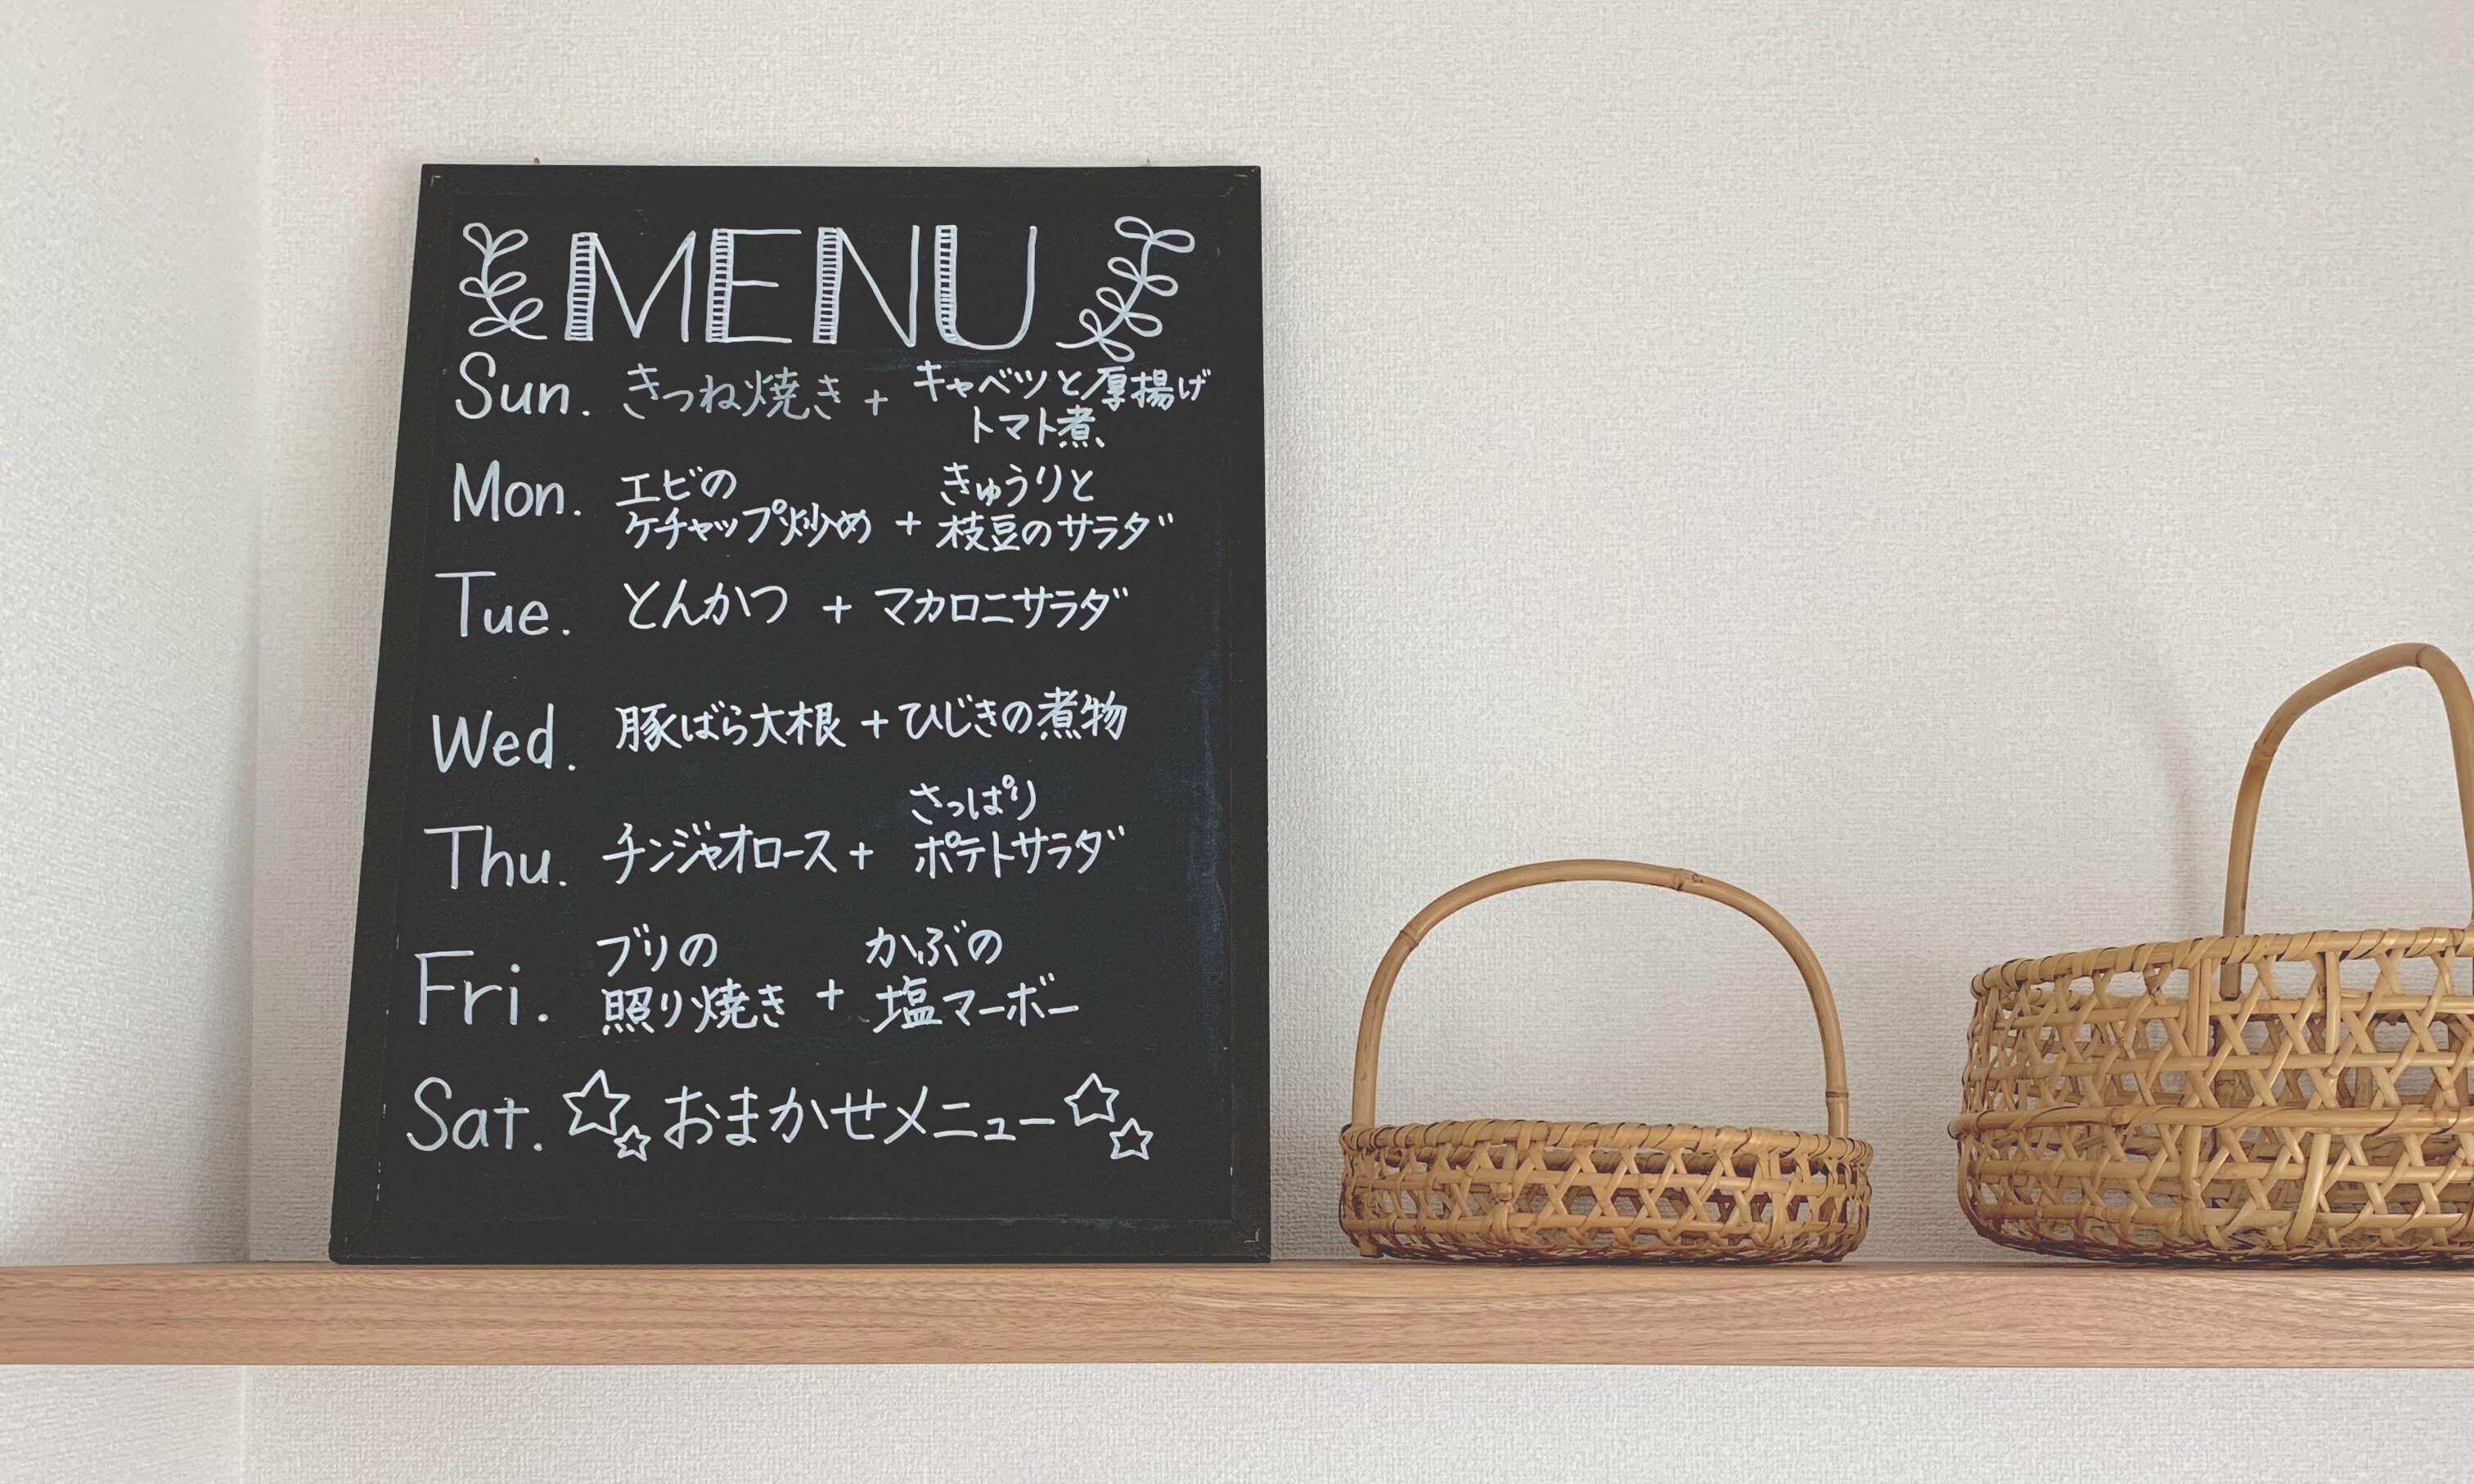 MENU
Sun. きつね焼き + キャベツと厚揚げ
トマト煮
Mon. エビの
ケチャップ炒め + きゅうりと
枝豆のサラダ
Tue. とんかつ + マカロニサラダ
Wed. 豚ばら大根 + ひじきの煮物
Thu. チンジャオロース + さっぱり
ポテトサラダ
Fri. ブリの
照り焼き + かぶの
塩マーボー
Sat. ☆☆おまかせメニュー☆☆